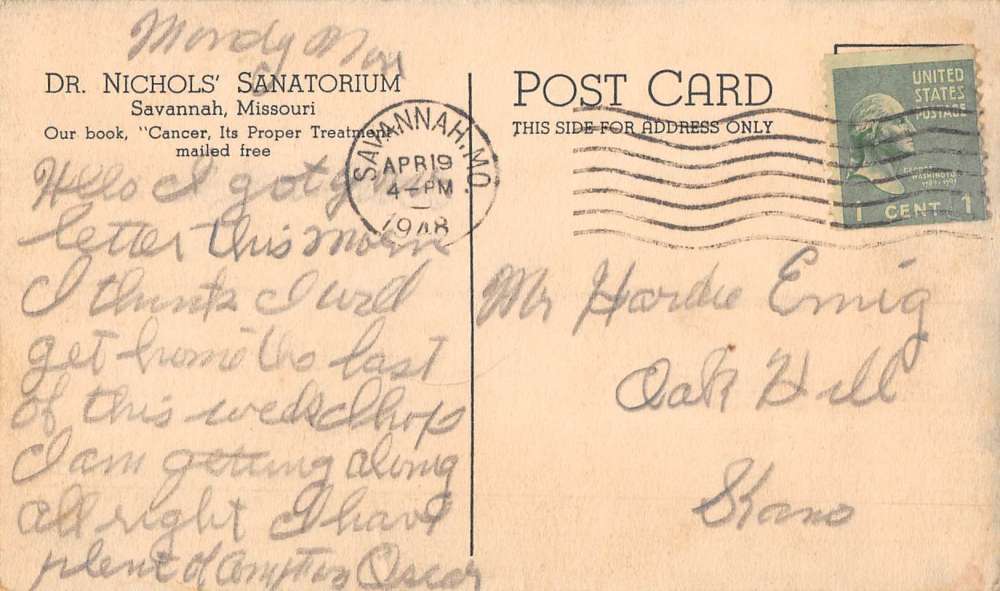 Mondy Morn
DR. NICHOLS' SANATORIUM
Savannah, Missouri
Our book, "Cancer, Its Proper Treatment,
mailed free
Hello I got your
letter this Morn
I think I will
get home the last
of this week I hop
I am getting along
all right I have
plent of Oscar
POST CARD
THIS SIDE FOR ADDRESS ONLY
SAVANNAH, MO.
APR 19
4-PM
1948
UNITED
STATES
POSTAGE
GEORGE
WASHINGTON
1 CENT 1
Mr Hardie Emig
Oak Hill
Kans